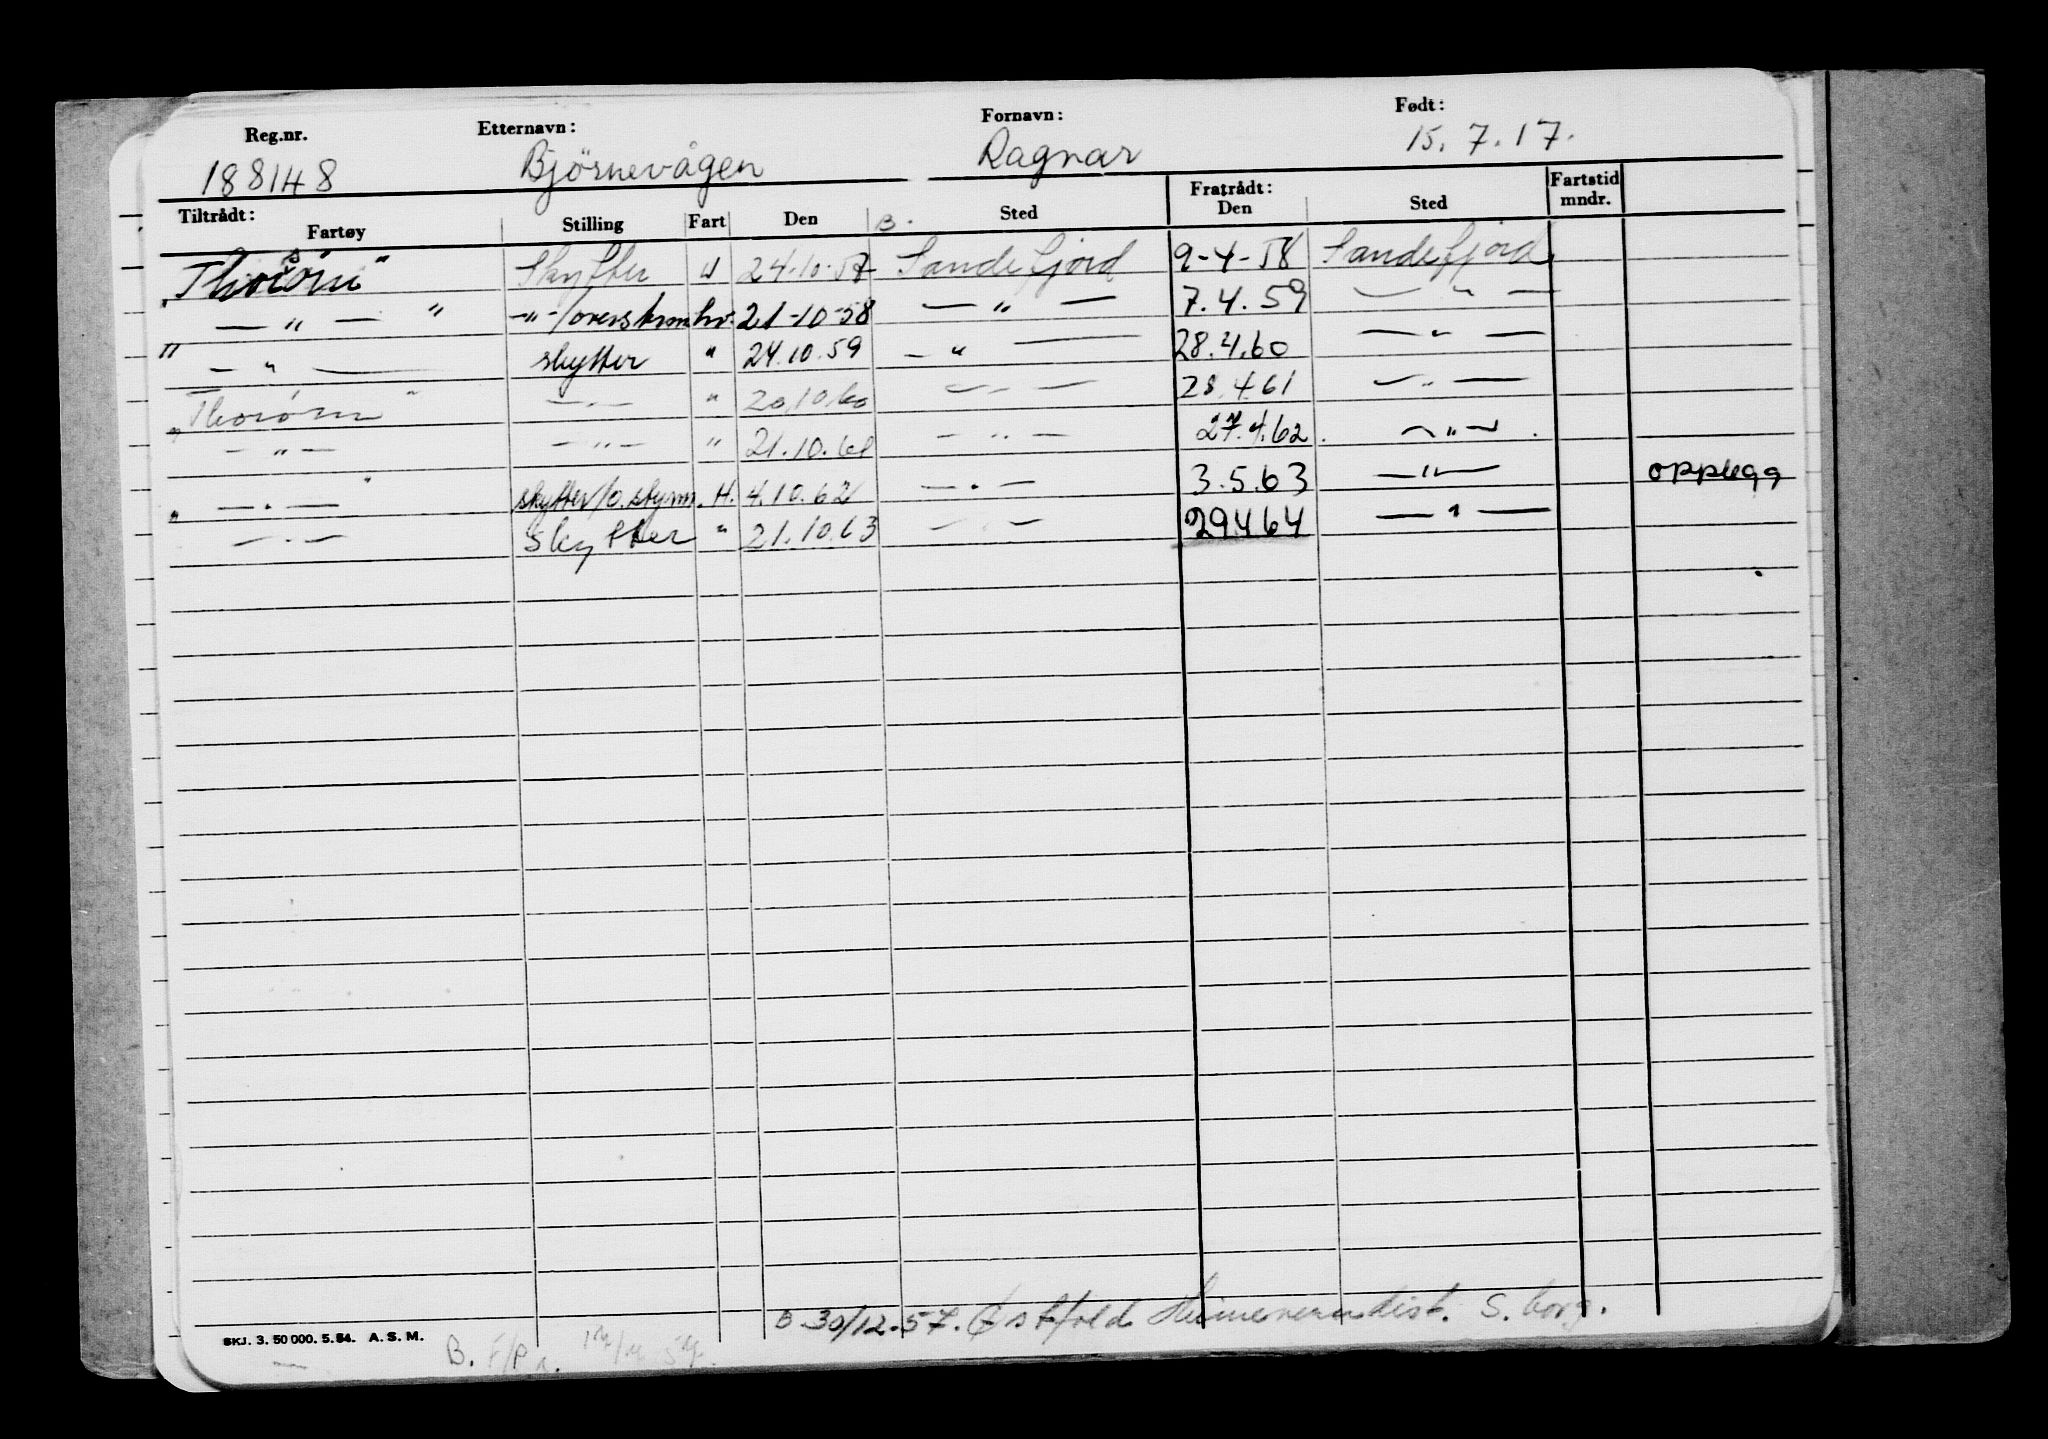 Reg.nr. Etternavn: Fornavn: Født:
188148 Bjørnevågen Ragnar 15.7.17.
Tiltrådt: Fratrådt: Fartstid mndr.
Fartøy Stilling Fart Den B. Sted Den Sted
"Thorsørn" Skytter 24-10-57 Sandefjord 9-4-58 Sandefjord
— " — " —"—/overstrm hv. 21-10-58 — " — 7.4.59 — " —
" — " — skytter " 24.10.59 — " — 28.4.60 — " —
"Thorørn" — " — " 20.10.60 — " — 28.4.61 — " —
— " — — " — " 21.10.61 — " — 27.4.62. — " — .
" — " — " skytter/o.styrm. H. 4.10.62 — " — 3.5.63 — " — opplegg
— " — Skytter " 21.10.63 — " — 29.4.64 — " —
B 30/12-57. Østfold Heimeverndist. S.borg.
SKJ. 3. 50 000. 5. 54. A. S. M.
B. F/P